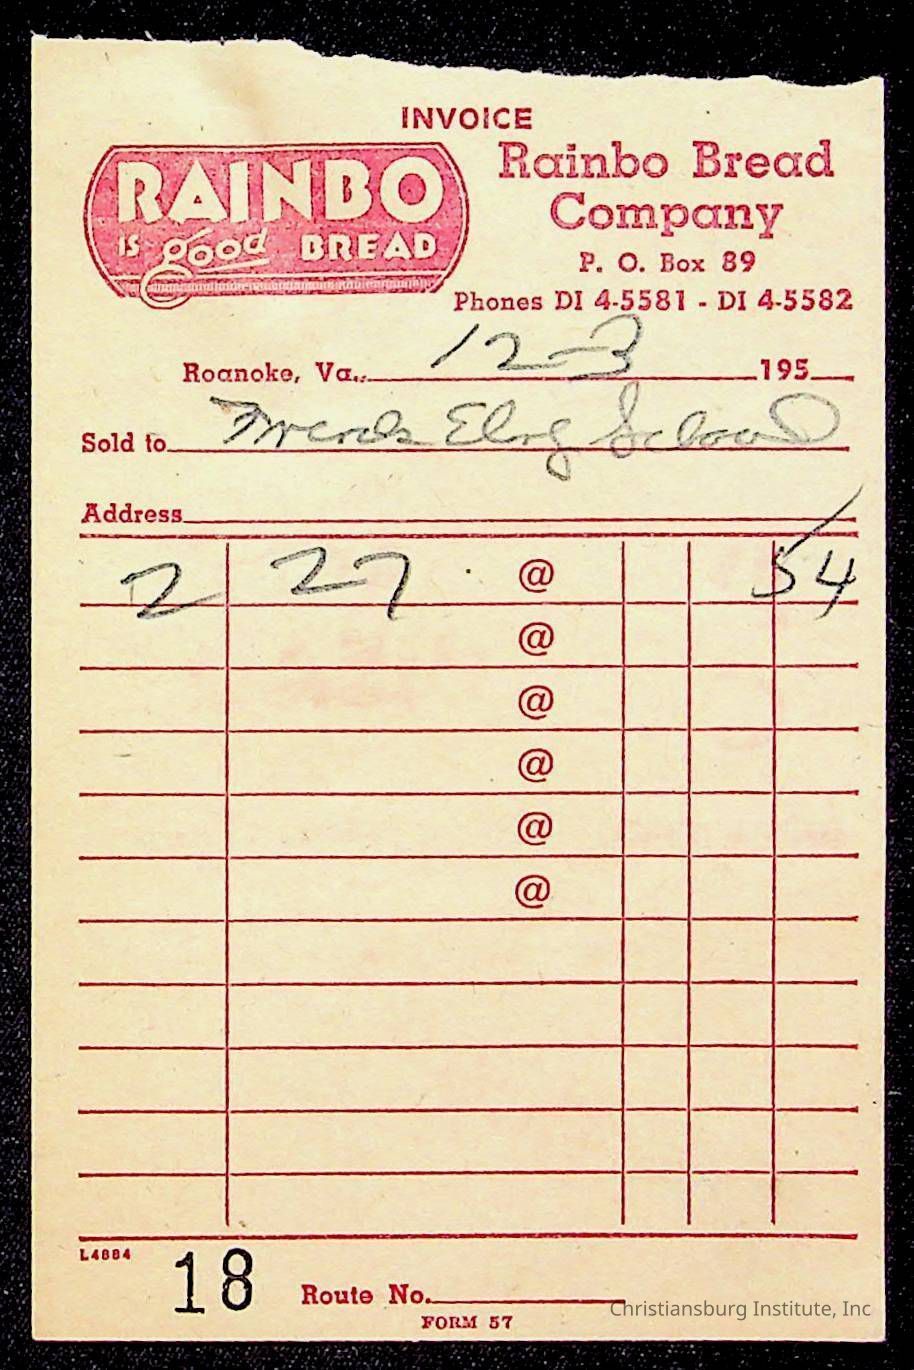 INVOICE
RAINBO
IS good BREAD
Rainbo Bread
Company
P. O. Box 89
Phones DI 4-5581 - DI 4-5582
Roanoke, Va. 12-3 195
Sold to Elem School
Address
2 27 @ 54
@
@
@
@
@
L4884
18 Route No.
FORM 57
Christiansburg Institute, Inc